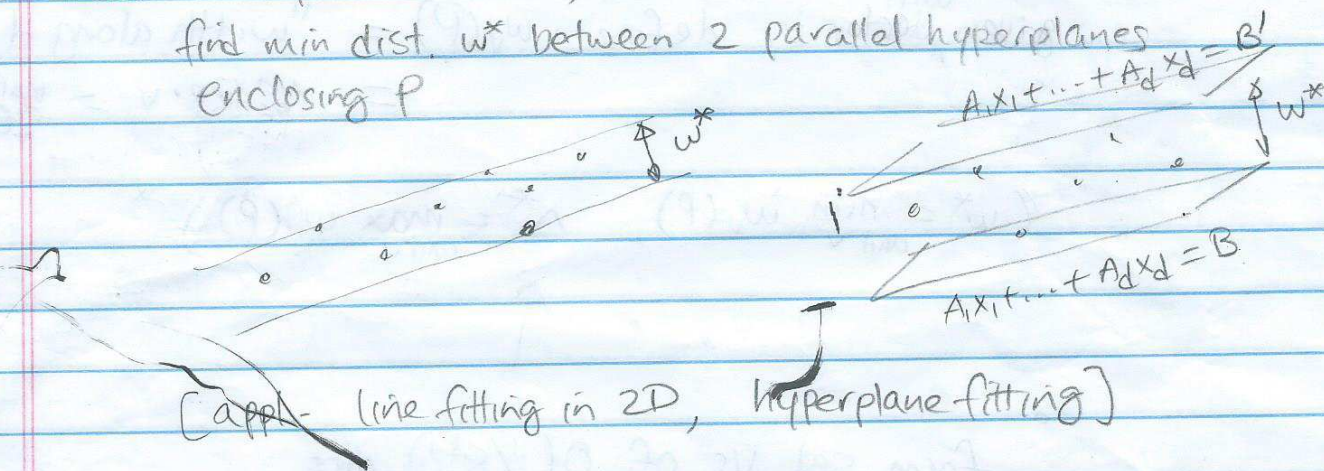 find min dist. w* between 2 parallel hyperplanes
enclosing P
w*
A₁x₁+...+A_d x_d = B'
w*
A₁x₁+...+A_d x_d = B
[appl- line fitting in 2D, hyperplane fitting]